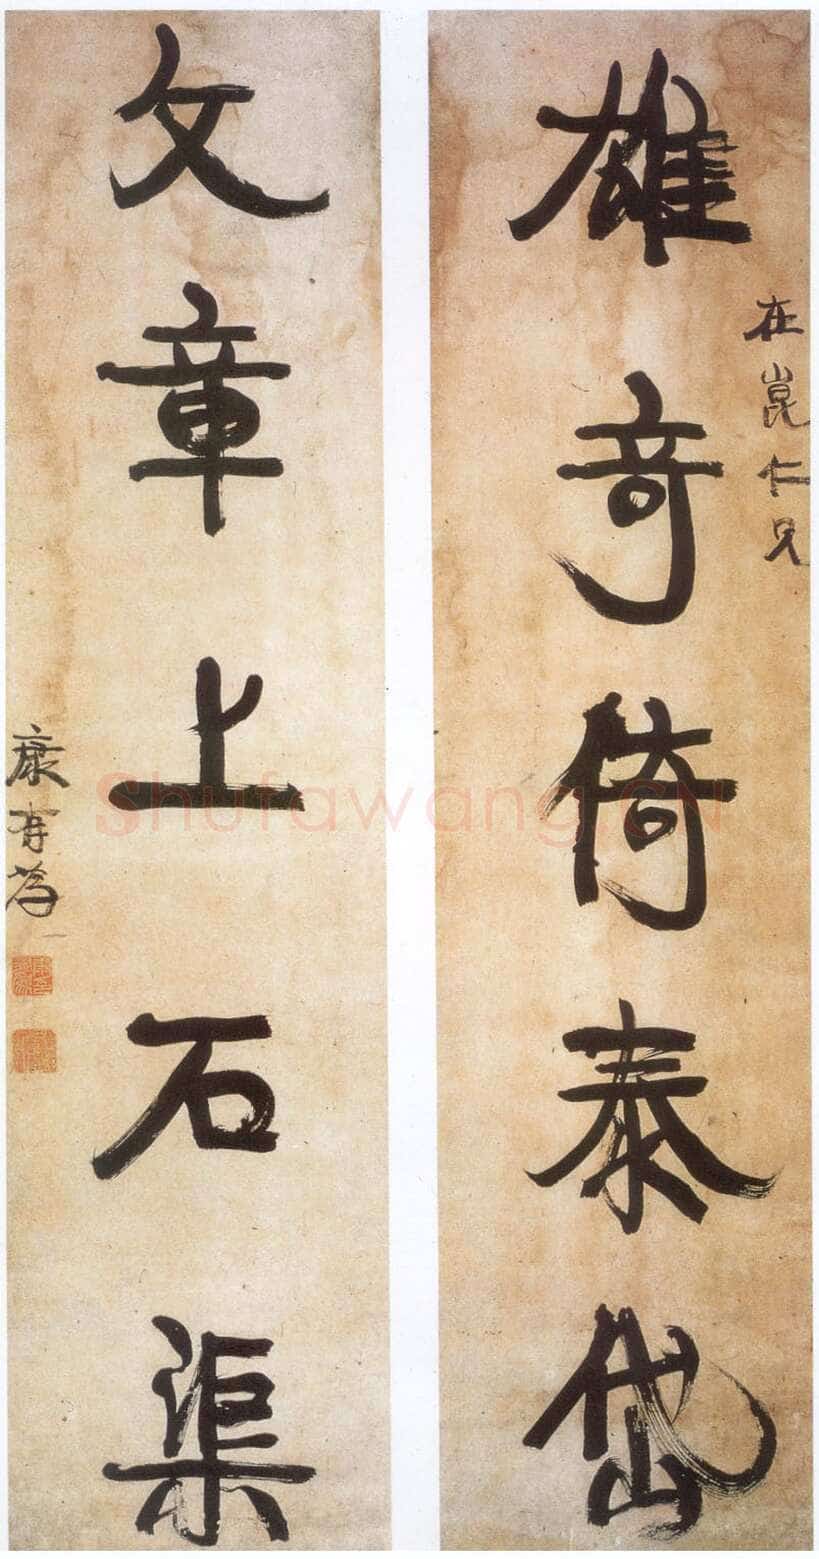 在崑仁兄
雄奇倚泰岱
文章上石渠
康有為
Shufawang.CN